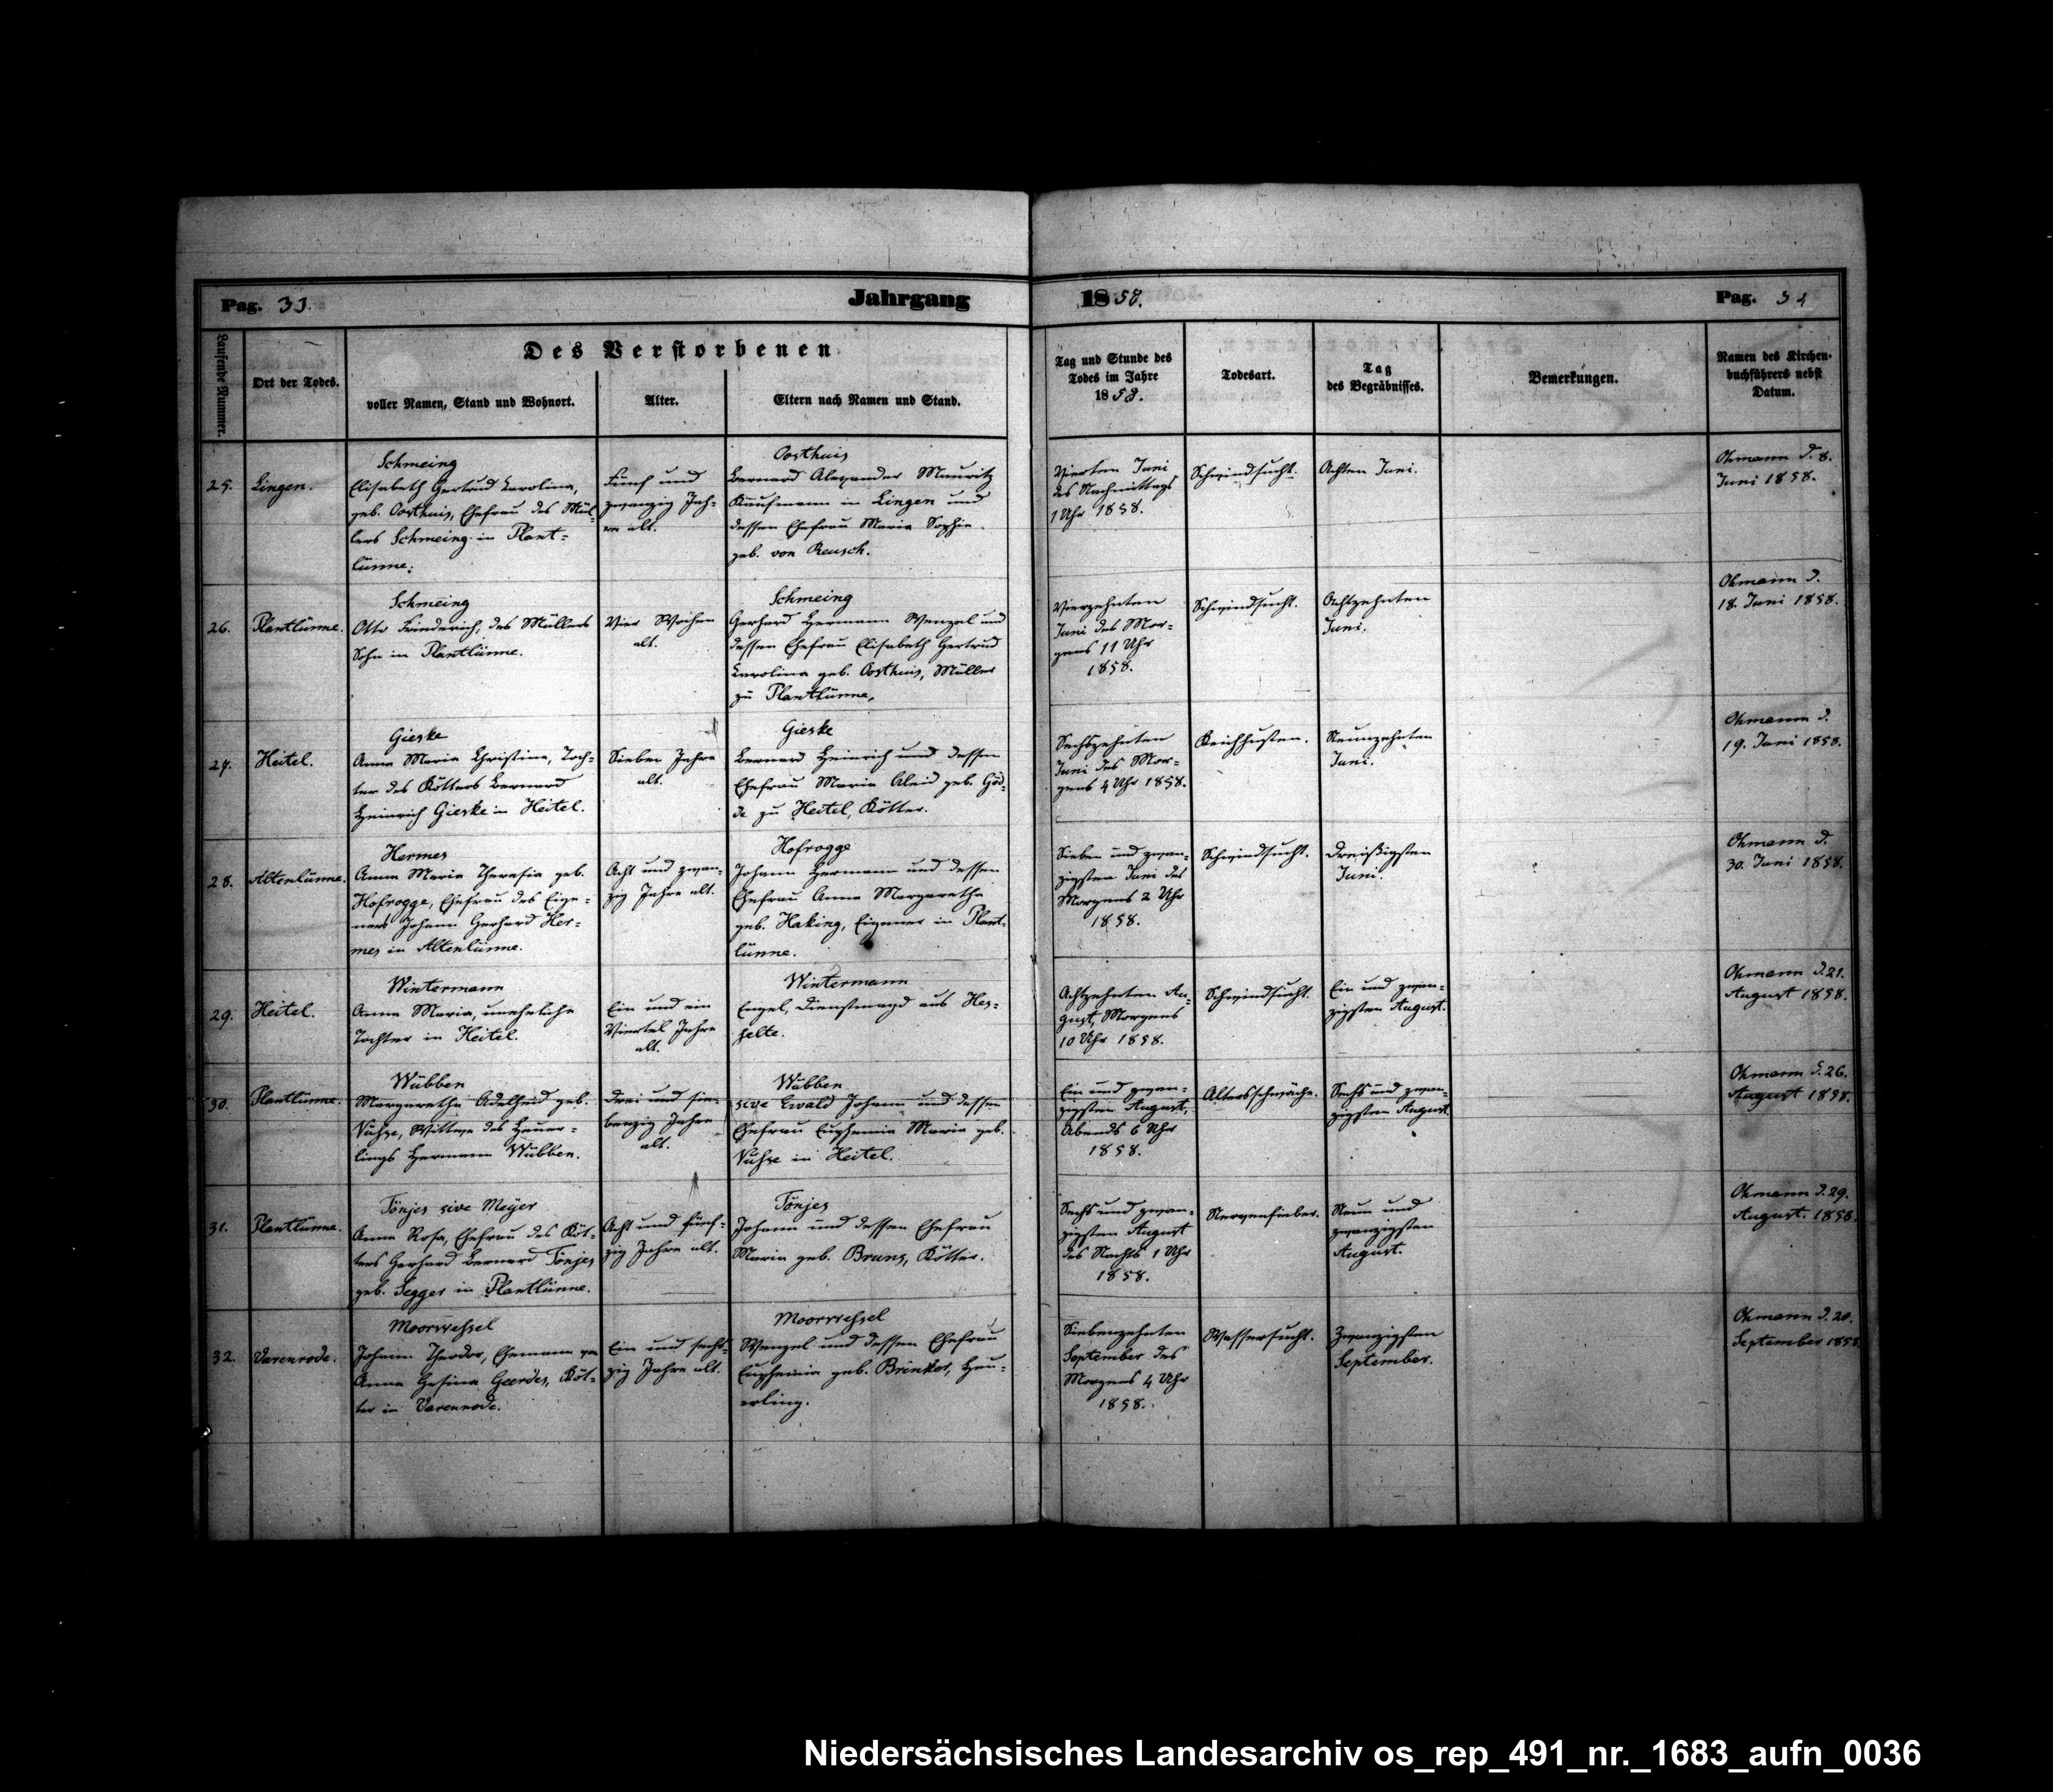 Pag. 33.
Jahrgang
1858.
Pag. 34
Laufende Nummer.
Ort der Todes.
Des Verstorbenen
voller Namen, Stand und Wohnort.
Alter.
Eltern nach Namen und Stand.
Tag und Stunde des
Todes im Jahre
1858.
Todesart.
Tag
des Begräbnisses.
Bemerkungen.
Namen des Kirchen-
buchführers nebst
Datum.
25.
Lingen.
Schmeing
Elisabeth Gertrud Carolina,
geb. Oosthuis, Ehefrau des Mül-
lers Schmeing in Plant=
lünne.
Fünf und
zwanzig Jah-
re alt.
Oosthuis
Bernard Alexander Mauritz
Kaufmann in Lingen und
dessen Ehefrau Maria Sophie
geb. von Reusch.
Vierten Juni
des Nachmittags
1 Uhr 1858.
Schwindsucht.
Achten Juni.
Ohmann d. 8.
Juni 1858.
26.
Plantlünne.
Schmeing
Otto Friederich, des Müllers
Sohn in Plantlünne.
Vier Wochen
alt.
Schmeing
Gerhard Hermann Wenzel und
dessen Ehefrau Elisabeth Gertrud
Carolina geb. Oosthuis, Müller
zu Plantlünne.
Vierzehnten
Juni des Mor=
gens 11 Uhr
1858.
Schwindsucht.
Achtzehnten
Juni.
Ohmann d.
18. Juni 1858.
27.
Heitel.
Gieske
Anna Maria Christina, Toch=
ter des Kötters Bernard
Heinrich Gieske in Heitel.
Sieben Jahre
alt.
Gieske
Bernard Heinrich und dessen
Ehefrau Maria Aleid geb. Göd-
de zu Heitel, Kötter.
Sechszehnten
Juni des Mor=
gens 4 Uhr 1858.
Keichhusten.
Neunzehnten
Juni.
Ohmann d.
19. Juni 1858.
28.
Altenlünne.
Hermes
Anna Maria Theresia geb.
Hofrogge, Ehefrau des Eige=
ners Johann Gerhard Her=
mes in Altenlünne.
Acht und zwan=
zig Jahre alt.
Hofrogge
Johann Hermann und dessen
Ehefrau Anna Margaretha
geb. Haking, Eigener in Plant-
lünne.
Sieben und zwan=
zigsten Juni des
Morgens 2 Uhr
1858.
Schwindsucht.
Dreißigsten
Juni.
Ohmann d.
30. Juni 1858.
29.
Heitel.
Wintermann
Anna Maria, uneheliche
Tochter in Heitel.
Ein und ein
Viertel Jahre
alt.
Wintermann
Engel, Dienstmagd aus Hes=
selte.
Achtzehnten Au=
gust, Morgens
10 Uhr 1858.
Schwindsucht.
Ein und zwan=
zigsten August.
Ohmann d. 21.
August 1858.
30.
Plantlünne.
Wübben
Margaretha Adelheid geb.
Wittwe des Heuer=
lings Hermann Wübben.
Drei und sie-
benzig Jahre
alt.
Wübben
sive Ewald Johann und dessen
Ehefrau Euphemia Maria geb.
in Heitel.
Ein und zwan=
zigsten August,
Abends 6 Uhr
1858.
Altersschwäche.
Sechs und zwan=
zigsten August.
Ohmann d. 26.
August 1858.
31.
Plantlünne.
Tönjes sive Meÿer
Anna Rosa, Ehefrau des Köt=
ters Gerhard Bernard Tönjes
geb. Segger in Plantlünne.
Acht und fünf=
zig Jahre alt.
Tönjes
Johann und dessen Ehefrau
Maria geb. Bruns, Kötter.
Sechs und zwan=
zigsten August
des Nachts 1 Uhr
1858.
Nervenfieber.
Neun und
zwanzigsten
August.
Ohmann d. 29.
August. 1858.
32.
Varenrode.
Moorwessel
Johann Theodor, Ehemann von
Anna Gesina Geerdes, Köt=
ter in Varenrode.
Ein und sechs=
zig Jahre alt.
Moorwessel
Wenzel und dessen Ehefrau
Euphemia geb. Brinker, Heu=
erling.
Siebenzehnten
September des
Morgens 4 Uhr
1858.
Wassersucht.
Zwanzigsten
September.
Ohmann d. 20.
September 1858.
Niedersächsisches Landesarchiv os_rep_491_nr._1683_aufn_0036